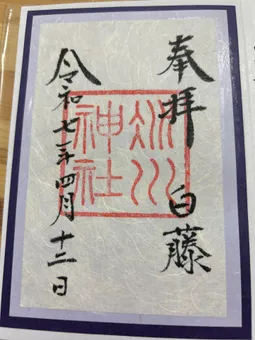 奉拝 白藤
神社
令和七年四月十二日